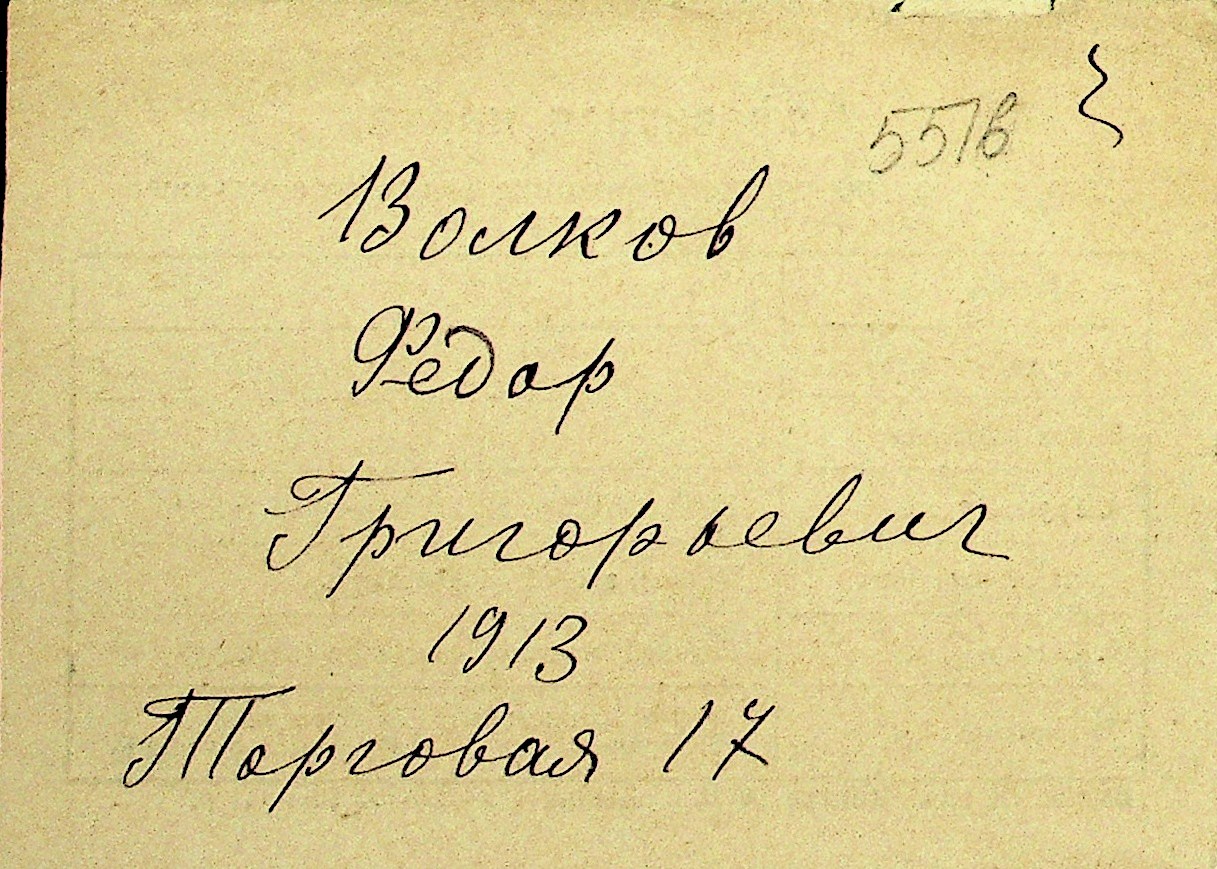 551в
Волков
Федор
Григорьевич
1913
Торговая 17